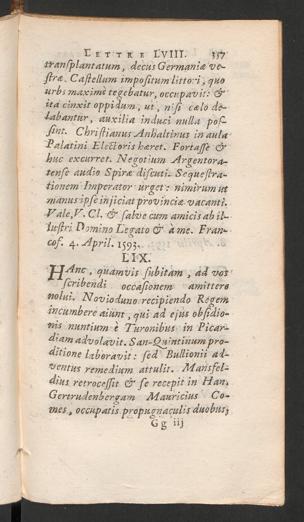 LETTRE LVIII. 357
transplantatum, decus Germaniæ ve-
stræ. Castellum impositum littori, quo
urbs maximè tegebatur, occupavit: &
ita cinxit oppidum, ut, nisi cœlo de-
labantur, auxilia induci nulla pos-
sint. Christianus Anhaltinus in aula
Palatini Electoris hæret. Fortasse &
huc excurret. Negotium Argentora-
tense audio Spiræ discuti. Sequestra-
tionem Imperator urget: nimirum ut
manus ipse injiciat provinciæ vacanti.
Vale, V. Cl. & salve cum amicis ab il-
lustri Domino Legato & à me. Fran-
cof. 4. April. 1593.
LIX.
HAnc, quamvis subitam, ad vos
scribendi occasionem amittere
nolui. Novioduno recipiendo Regem
incumbere aiunt, qui ad ejus obsidio-
nis nuntium è Turonibus in Picar-
diam advolavit. San-Quintinum pro-
ditione laboravit: sed Bullionii ad-
ventus remedium attulit. Mansfel-
dius retrocessit & se recepit in Han.
Gertrudenbergam Mauricius Co-
mes, occupatis propugnaculis duobus,
Gg iij